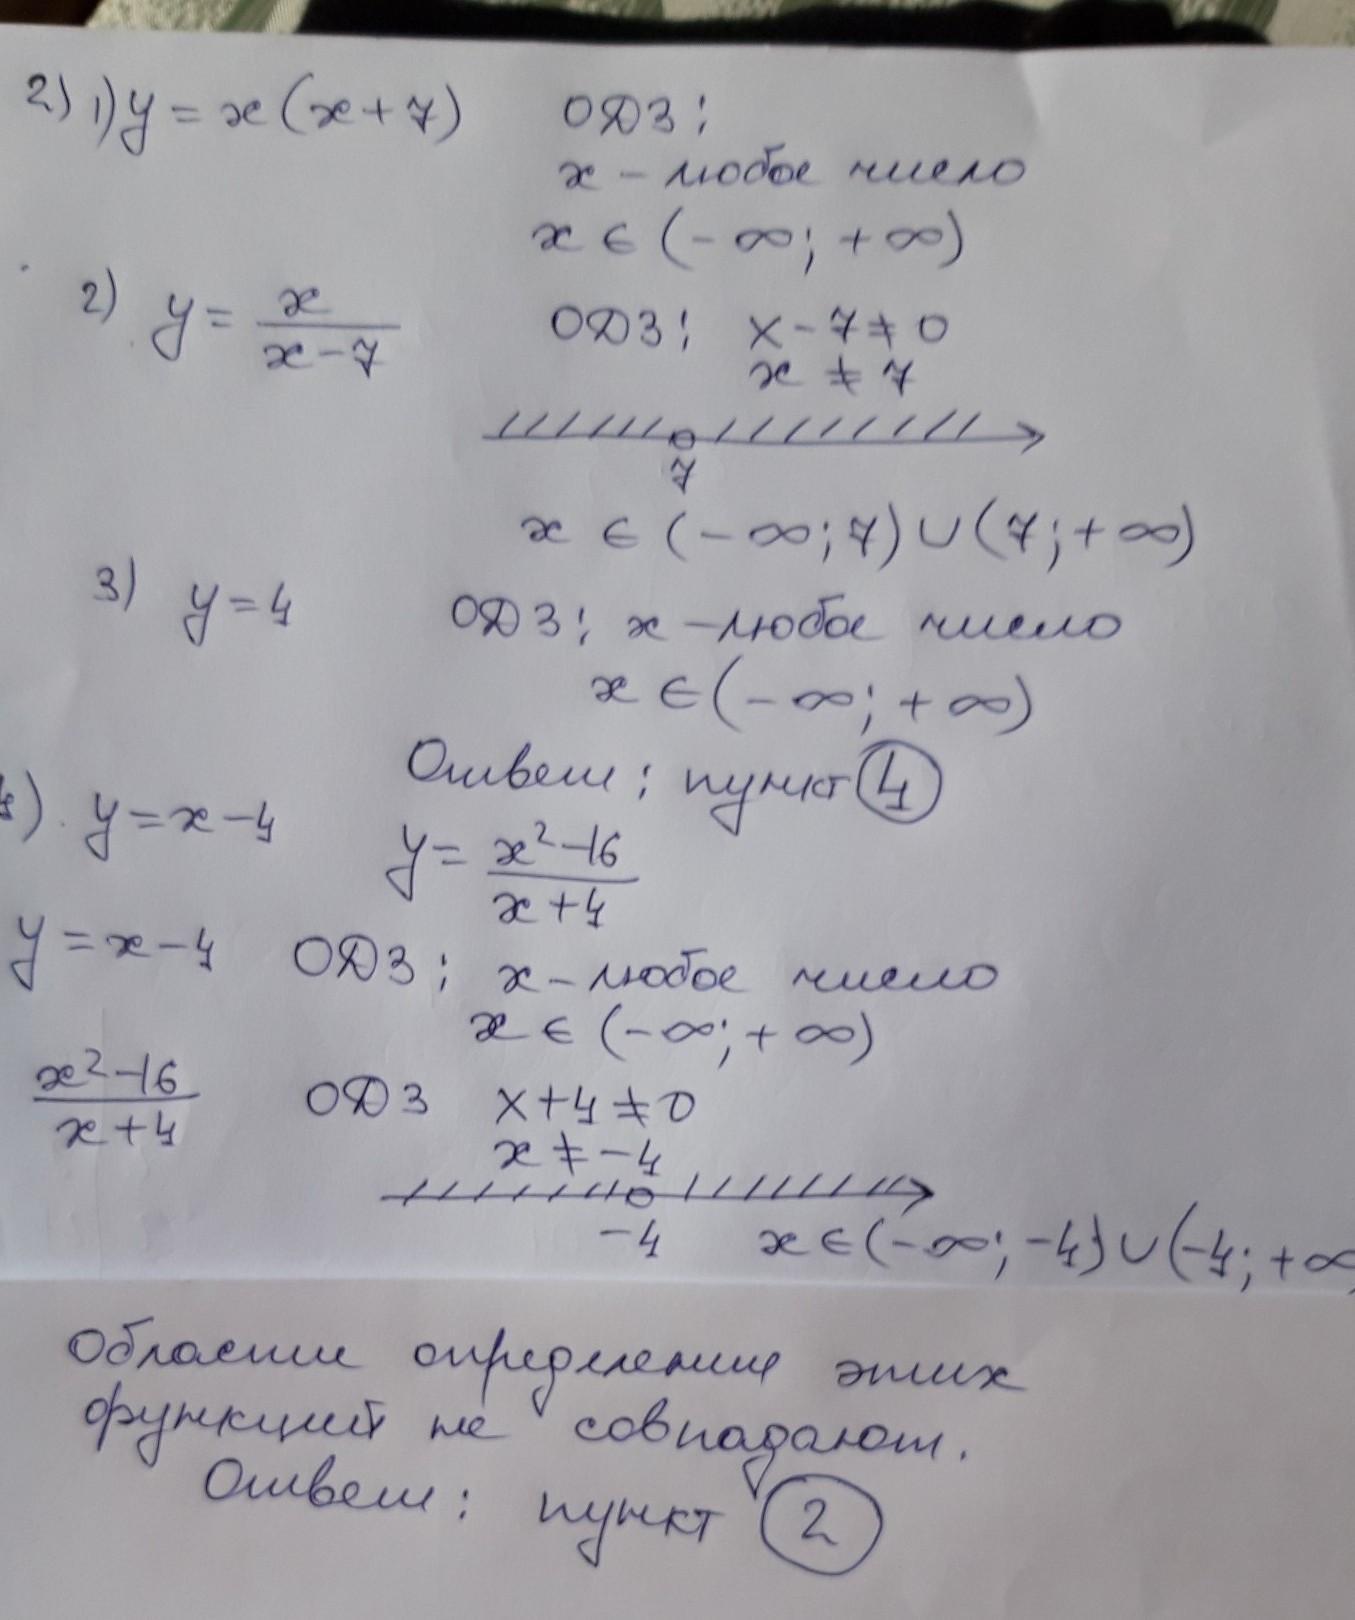 2) 1) y = x(x+7) ОДЗ:
x – любое число
x ∈ (-∞; +∞)
2) y = x/(x-7) ОДЗ: x-7≠0
x ≠ 7
7
x ∈ (-∞; 7) ∪ (7; +∞)
3) y = 4 ОДЗ: x – любое число
x ∈ (-∞; +∞)
Ответ: пункт 4
4) y = x-4 y = (x²-16)/(x+4)
y = x-4 ОДЗ: x – любое число
x ∈ (-∞; +∞)
(x²-16)/(x+4) ОДЗ x+4≠0
x ≠ -4
-4 x ∈ (-∞; -4) ∪ (-4; +∞
Области определения этих
функций не совпадают.
Ответ: пункт 2